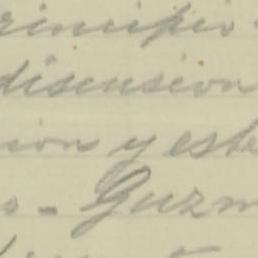 rincipio
discusion
ion y este
s - Guzm